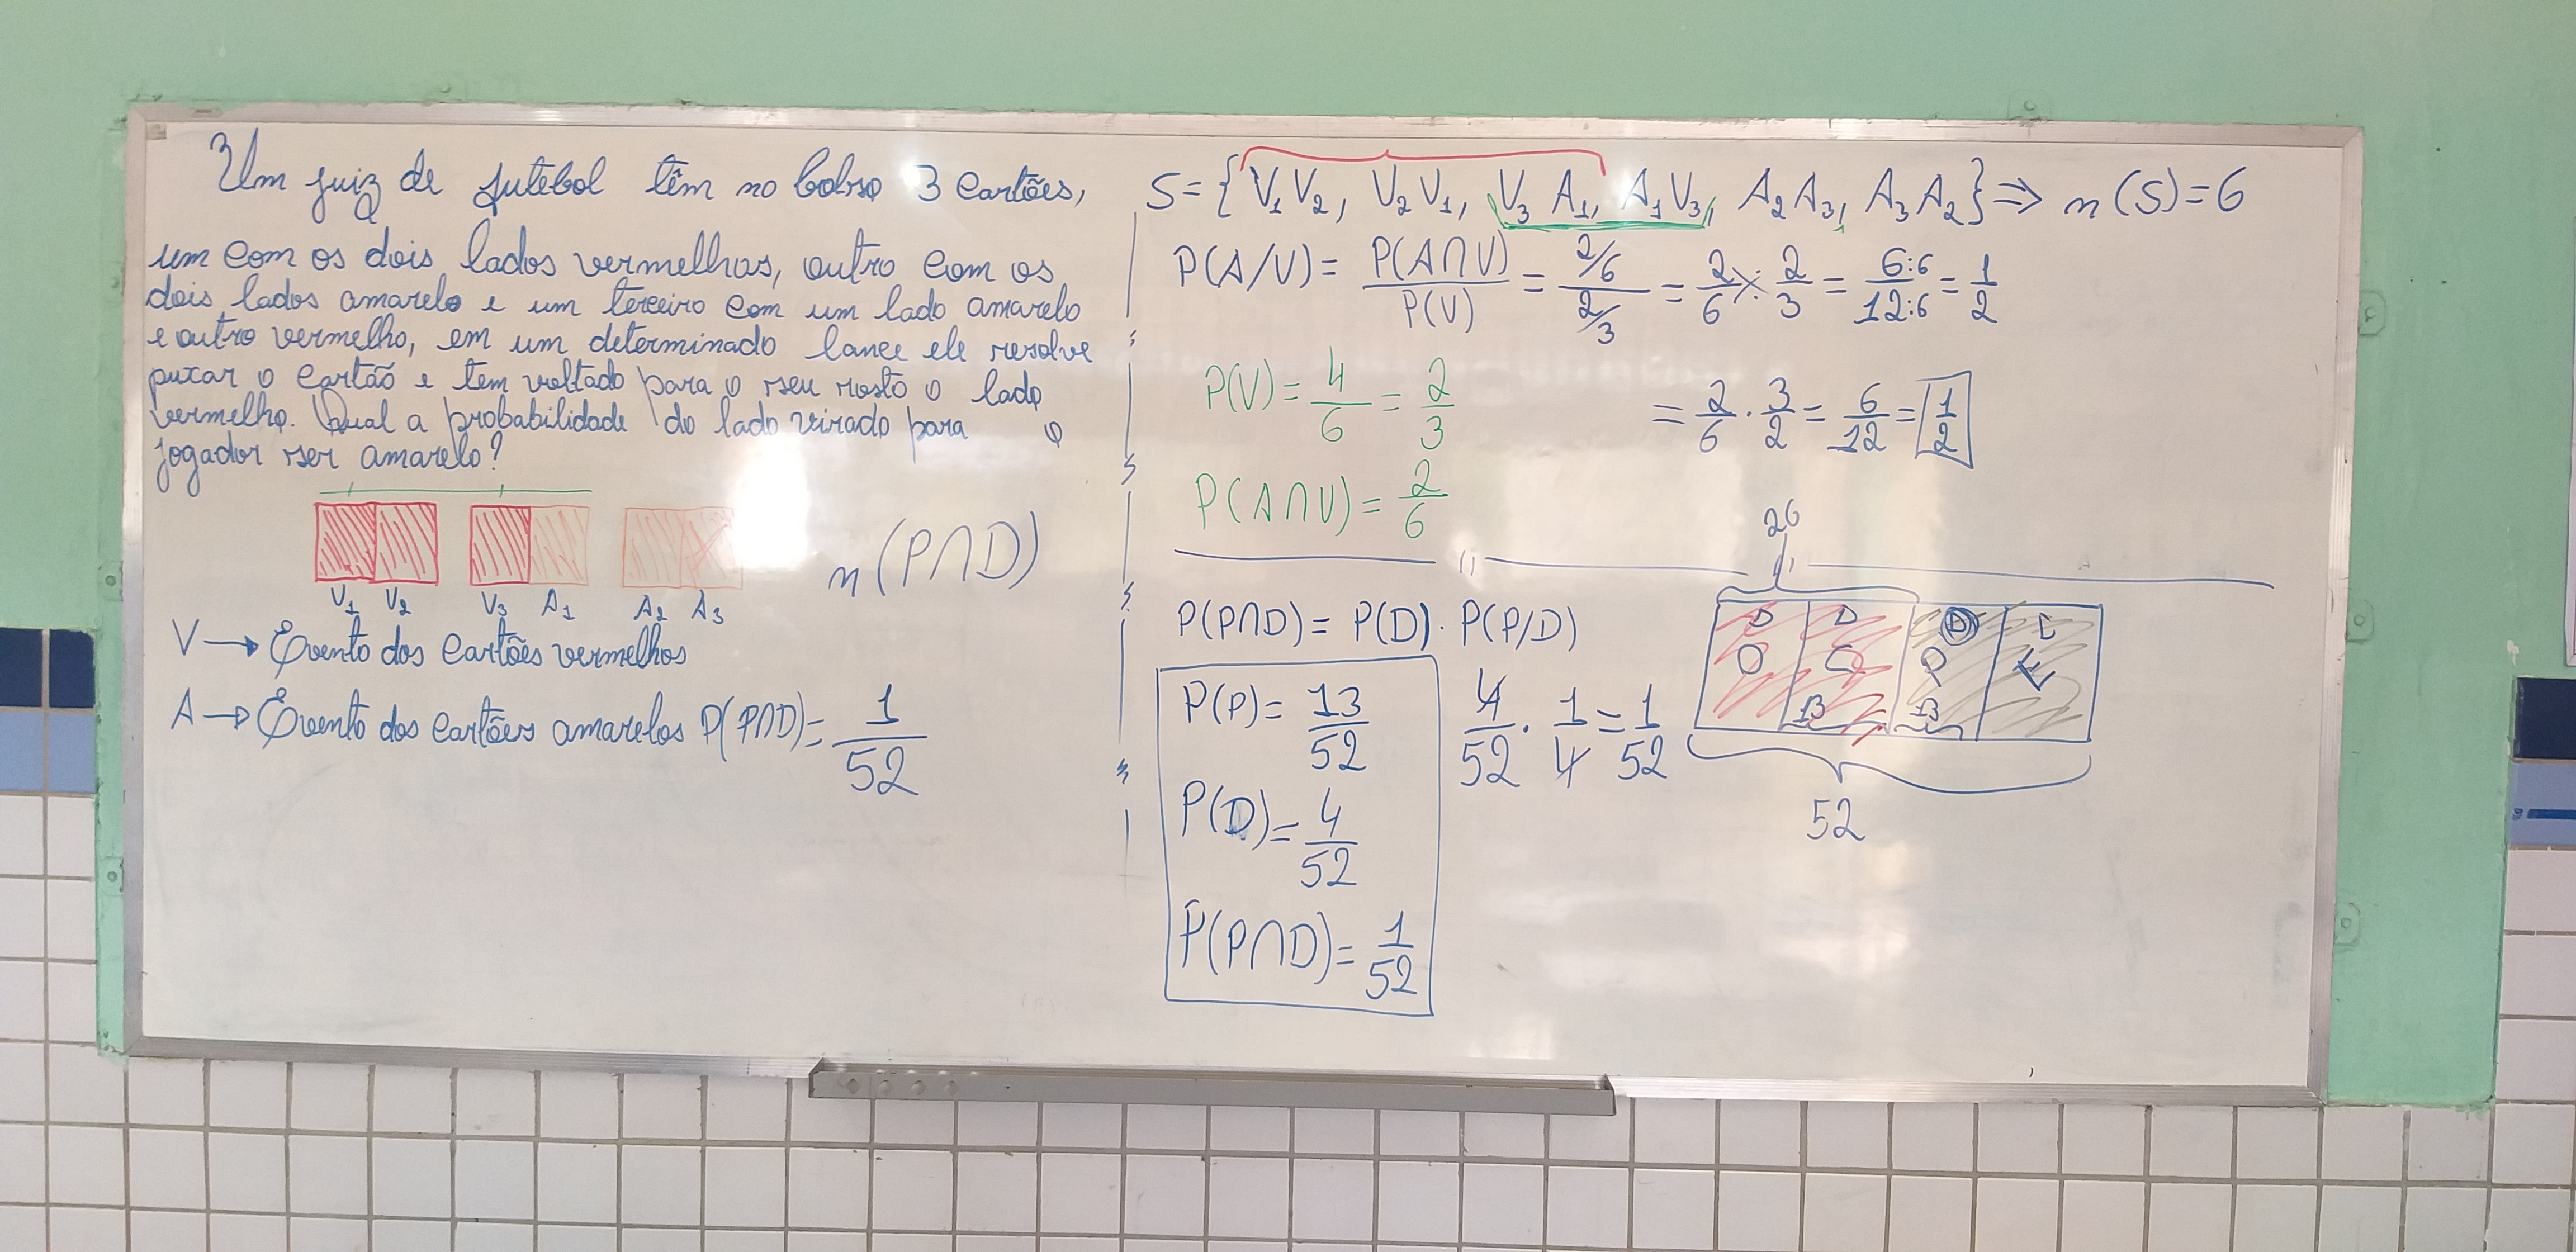 Um juiz de futebol têm no bolso 3 cartões,
um com os dois lados vermelhos, outro com os
dois lados amarelo e um terceiro com um lado amarelo
e outro vermelho, em um determinado lance ele resolve
puxar o cartão e tem voltado para o seu rosto o lado
vermelho. Qual a probabilidade do lado virado para o
jogador ser amarelo?
V₁ V₂ V₃ A₁ A₂ A₃
n(P∩D)
V → Evento dos cartões vermelhos
A → Evento dos cartões amarelos P(P∩D) = 1/52
S = {V₁V₂, V₂V₁, V₃A₁, A₁V₃, A₂A₃, A₃A₂} ⇒ n(S) = 6
P(A/V) = P(A∩V)/P(V) = (2/6)/(2/3) = 2/6 ÷ 2/3 = 6:6/12:6 = 1/2
P(V) = 4/6 = 2/3
= 2/6 · 3/2 = 6/12 = 1/2
P(A∩V) = 2/6
26
P(P∩D) = P(D) · P(P/D)
P(P) = 13/52
4/52 · 1/4 = 1/52
P(D) = 4/52
P(P∩D) = 1/52
D D D
O C P E
13 13
52